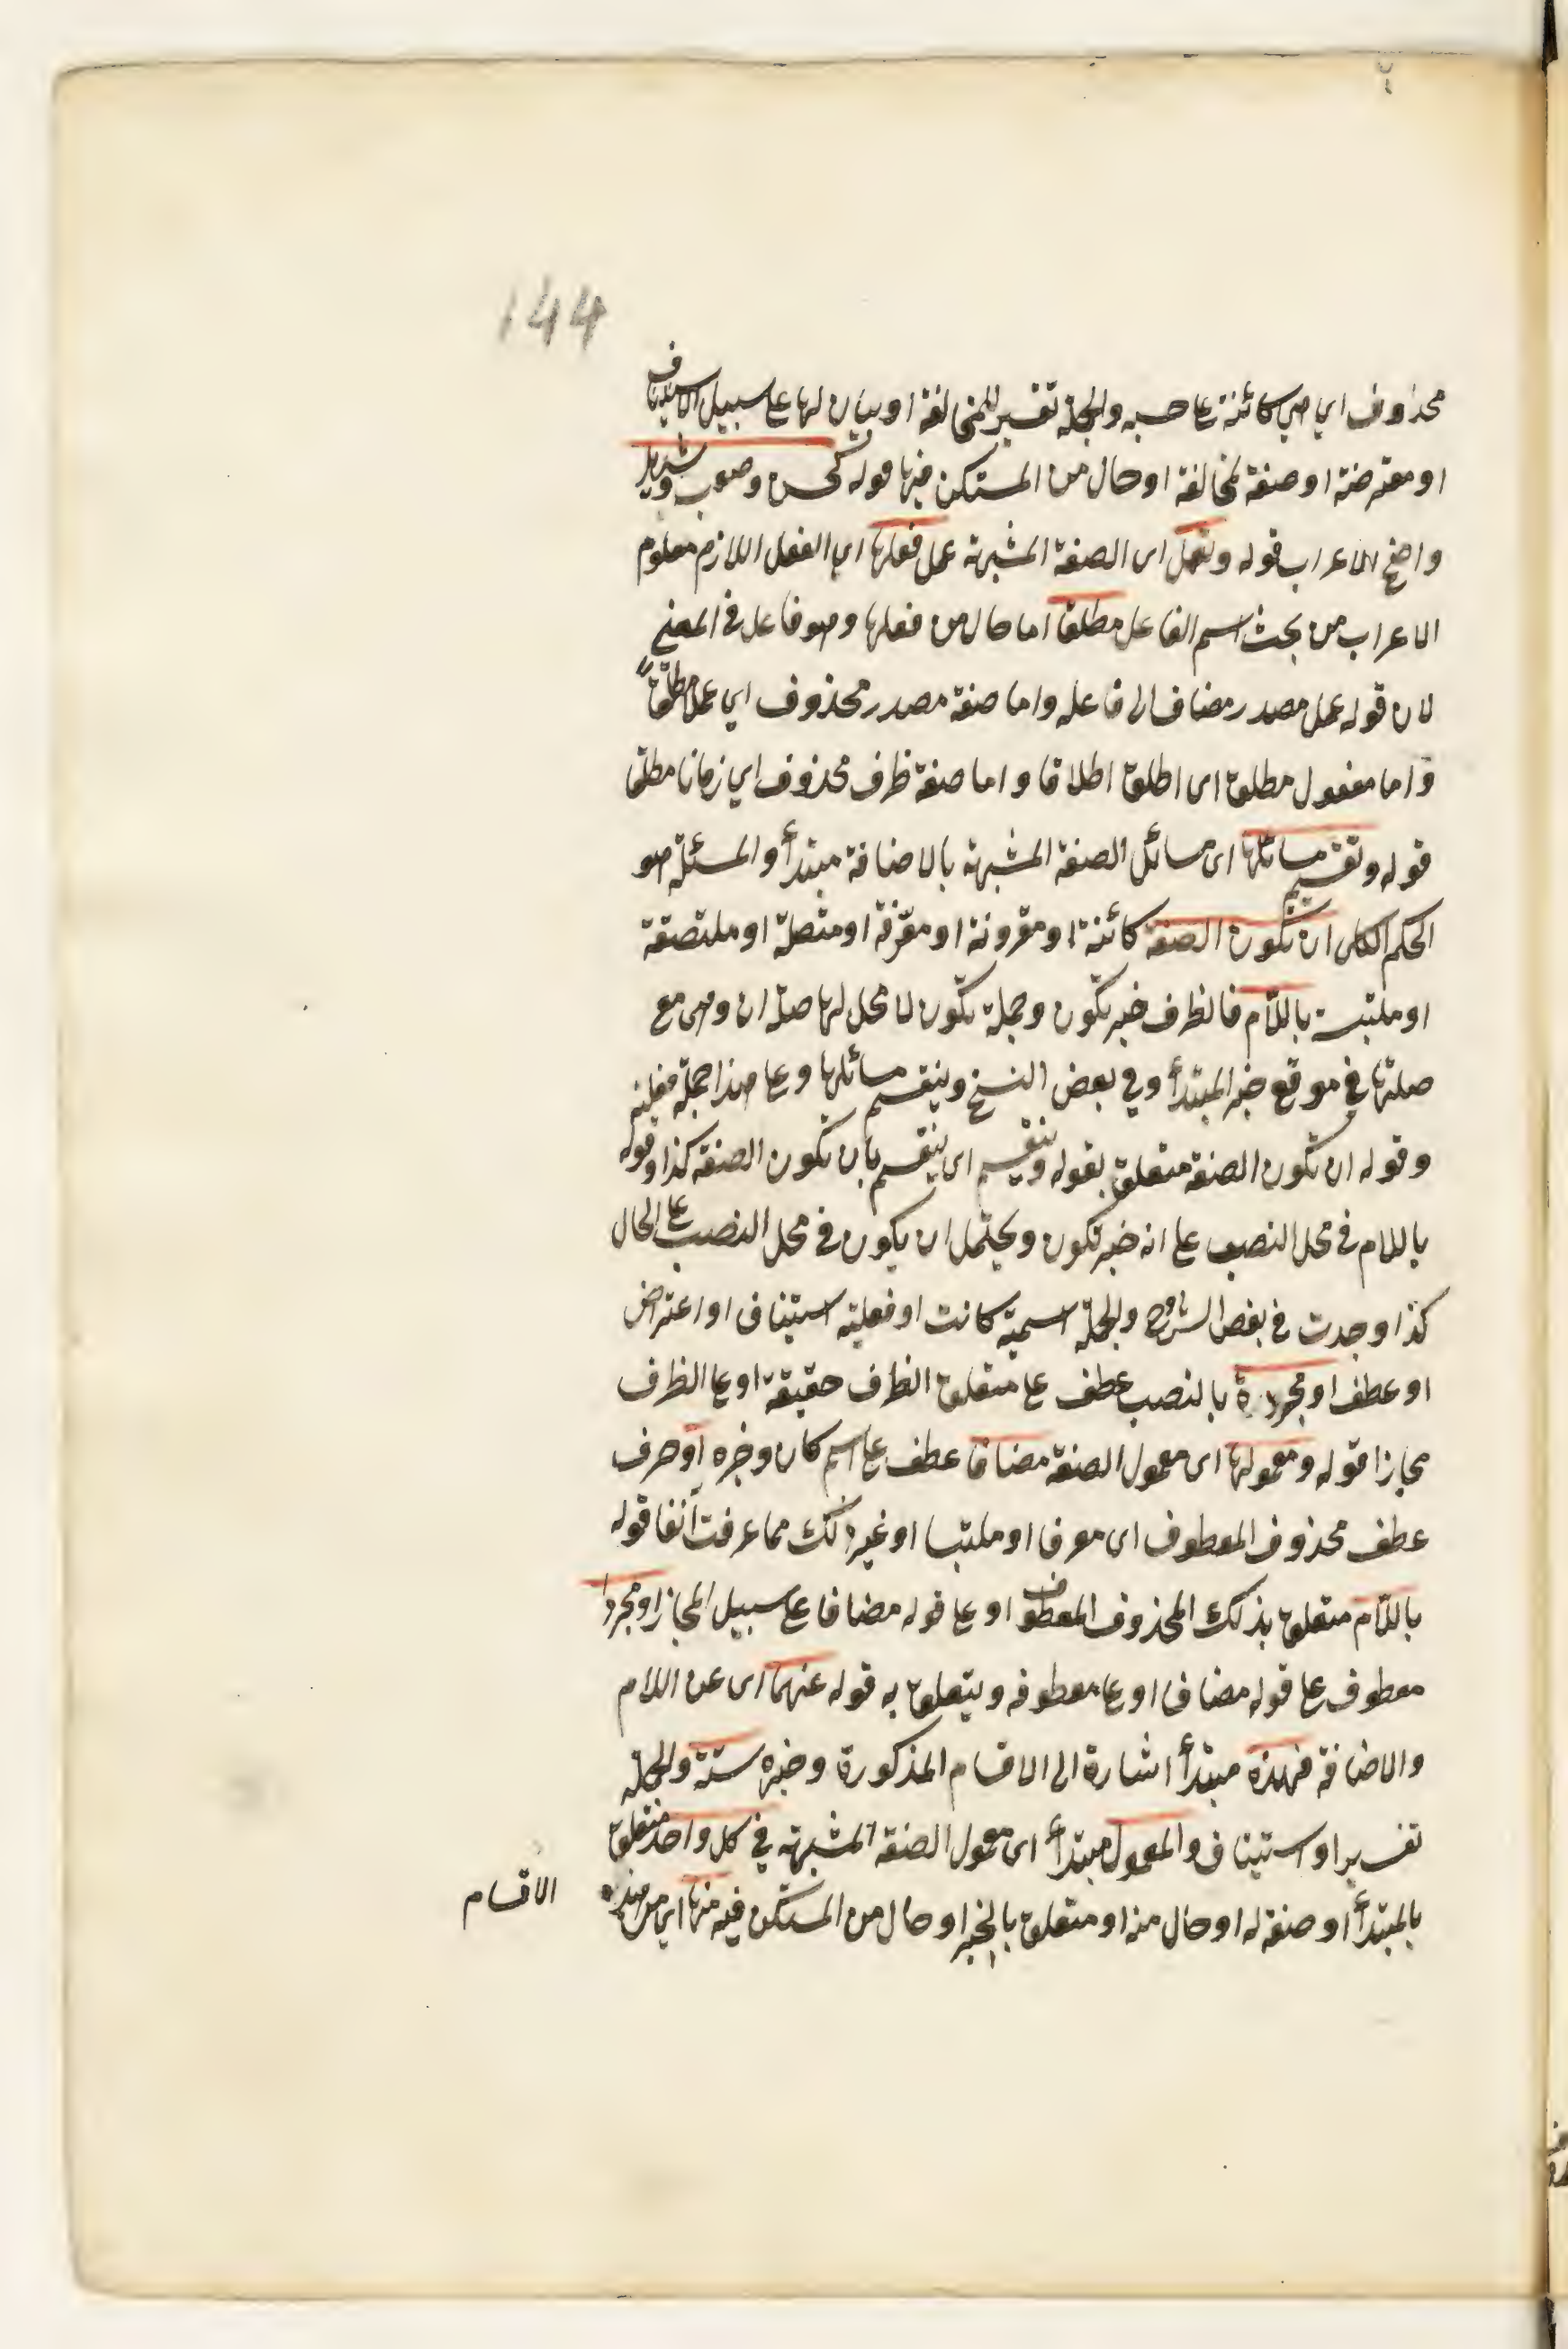 144
محذوف اي هي كائنة على حسبه والجملة تفسير للمخالفة او بيان لها على سبيل الاستيناف
او معترضة او صفة لمخالفة او حال من المستكن فيها قوله كحسن وصعب وشديد
واضح الاعراب قوله وتعمل اى الصفة المشبهة عمل فعلها اي الفعل اللازم معلوم
الاعراب من بحث اسم الفاعل مطلقا اما حال من فعلها وهو فاعل في المعنى
لان قوله عمل مصدر مضاف الى فاعله واما صفة مصدر محذوف اي عملا مطلقا
واما مفعول مطلق اى اطلق اطلاقا واما صفة ظرف محذوف اي زمانا مطلقا
قوله وتقسيم مسائلها اى مسائل الصفة المشبهة بالاضافة مبتدأ والمسئلة هو
الحكم الكلى ان تكون الصفة كائنة او مقرونة او معرّفة او متصلة او ملتصقة
او ملتبسة باللام فالظرف خبر تكون وجملة تكون لا محل لها صلة ان وهى مع
صلتها في موقع خبر المبتدأ وفي بعض النسخ وينقسم مسائلها وعلى هذا جملة فعلية
وقوله ان تكون الصفة متعلق بقوله وينقسم اى ينقسم بان تكون الصفة كذا وقوله
باللام في محل النصب على انه خبر تكون ويحتمل ان يكون في محل النصب على الحال
كذا وجدت في بعض الشروح والجملة اسمية كانت او فعلية استيناف او اعتراض
او عطف او مجردة بالنصب عطف على متعلق الظرف حقيقة او على الظرف
مجازا قوله ومعمولها اى معمول الصفة مضافا عطف على اسم كان وخبره او حرف
عطف محذوف المعطوف اى معرفا او ملتبسا او غير ذلك مما عرفت آنفا قوله
باللام متعلق بذلك المحذوف المعطوف او على قوله مضافا على سبيل المجاز او مجردا
معطوف على قوله مضافا او على معطوفه ويتعلق به قوله عنهما اى عن اللام
والاضافة فهذه مبتدأ اشارة الى الاقسام المذكورة وخبره ستة والجملة
تفسير او استيناف والمعمول مبتدأ اى معمول الصفة المشبهة في كل واحد متعلق
بالمبتدأ او صفة له او حال منه او متعلق بالخبر او حال من المستكن فيه منها اي من هذه
الاقسام